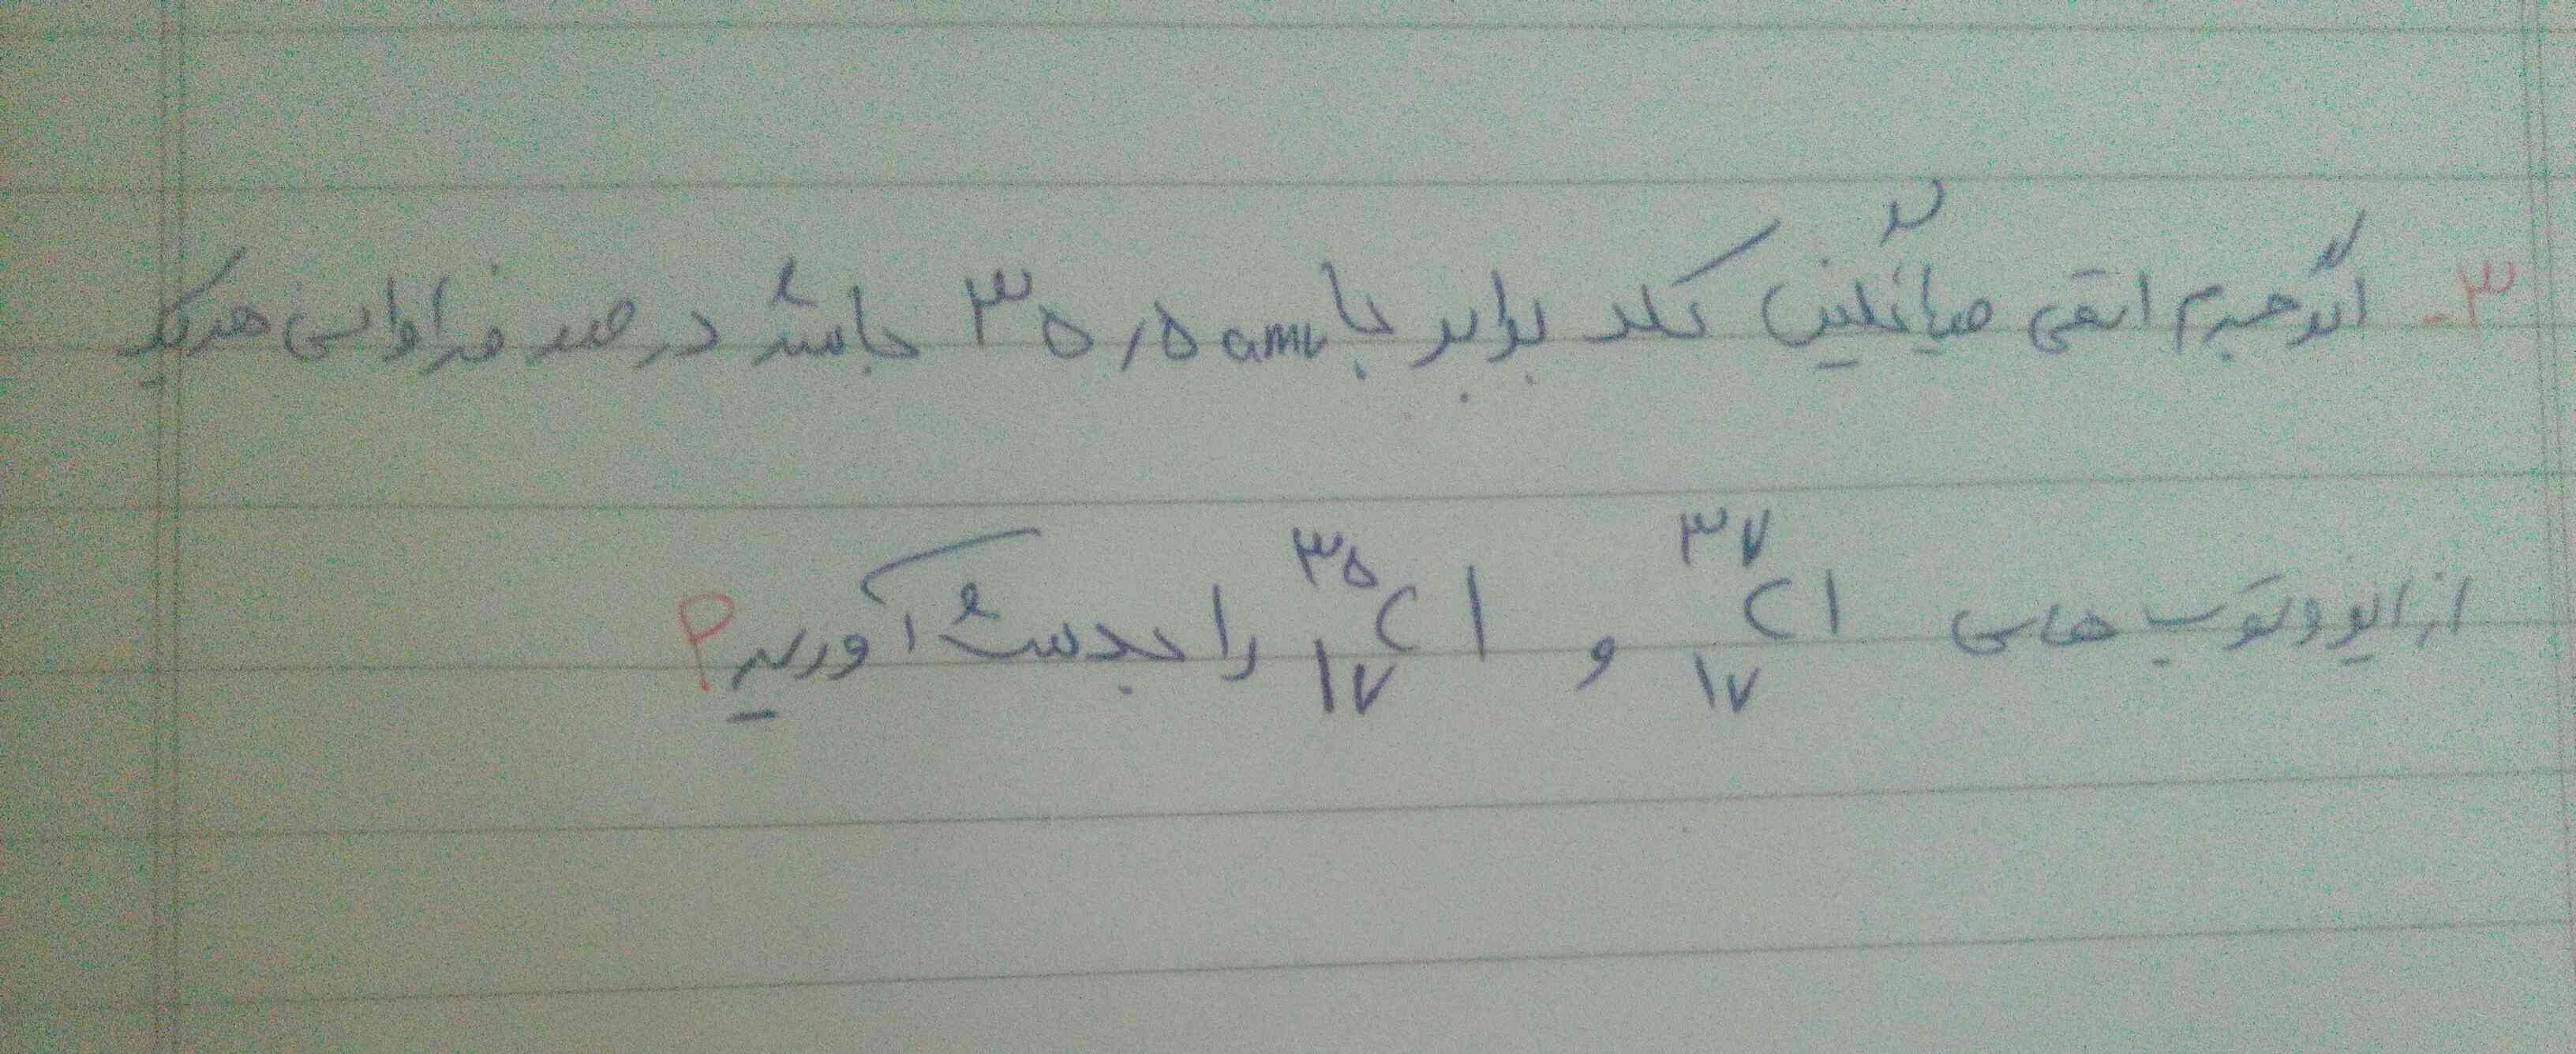 ۳- اگر جرم اتمی میانگین کلر برابر با ۳۵٫۵ amu باشد درصد فراوانی هریک
از ایزوتوپ های ³⁷₁₇Cl و ³⁵₁₇Cl را بدست آورید؟